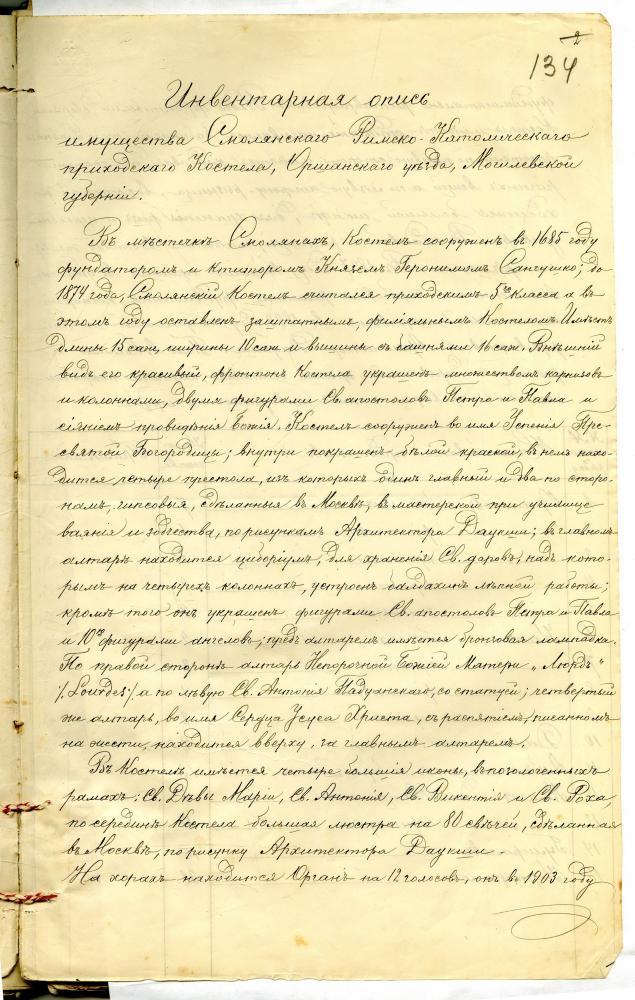 2
134
Инвентарная опись
имущества Смолянскаго Римско-Католическаго
приходскаго Костела, Оршанскаго уѣзда, Могилевской
губерніи.
Въ мѣстечкѣ Смолянахъ, Костелъ сооруженъ въ 1685 году
фундаторомъ и ктиторомъ Княземъ Геронимомъ Сангушко; до
1874 года, Смолянскій Костелъ считался приходскимъ 5го класса а въ
этомъ году оставленъ заштатнымъ, филіяльнымъ Костеломъ. Имѣетъ
длины 15 саж, ширины 10 саж и вышины съ башнями 16 саж. Внѣшній
видъ его красивый, фронтонъ Костела украшенъ множествомъ карнизовъ
и колоннами, двумя фигурами Св. апостоловъ Петра и Павла и
сіяніемъ провидѣнія Божія. Костелъ сооруженъ во имя Успенія Пре-
святой Богородицы; внутри покрашенъ бѣлой краской, въ немъ нахо-
дится четыре престола, изъ которыхъ одинъ главный и два по сторо-
намъ, гипсовыя, сдѣланныя въ Москвѣ, въ мастерской при училище
ваянія и зодчества, по рисункамъ Архитектора Даукши; въ главномъ
алтарѣ находится циборіумъ, для храненія Св. даровъ, надъ кото-
рымъ на четырехъ колоннахъ, устроенъ балдахинъ лѣпной работы;
кромѣ того онъ украшенъ фигурами Св. апостоловъ Петра и Павла
и 10ю фигурами ангеловъ; предъ алтаремъ имѣется бронзовая лампадка.
По правой сторонѣ алтарь Непорочной Божіей Матери „Люрдъ"
/Lourdes/ а по лѣвую Св. Антонія Падуанскаго, со статуей; четвертый
же алтарь, во имя Сердца Іусуса Христа, съ распятіемъ, писанномъ
на жести, находится вверху, за главнымъ алтаремъ.
Въ Костелѣ имѣется четыре большія иконы, въ позолоченныхъ
рамахъ: Св. Дѣвы Маріи, Св. Антонія, Св. Викентія и Св. Роха,
по серединѣ Костела большая люстра на 80 свѣчей, сдѣланная
въ Москвѣ, по рисунку Архитектора Даукши.
На хорахъ находится Органъ на 12 голосовъ, онъ въ 1903 году